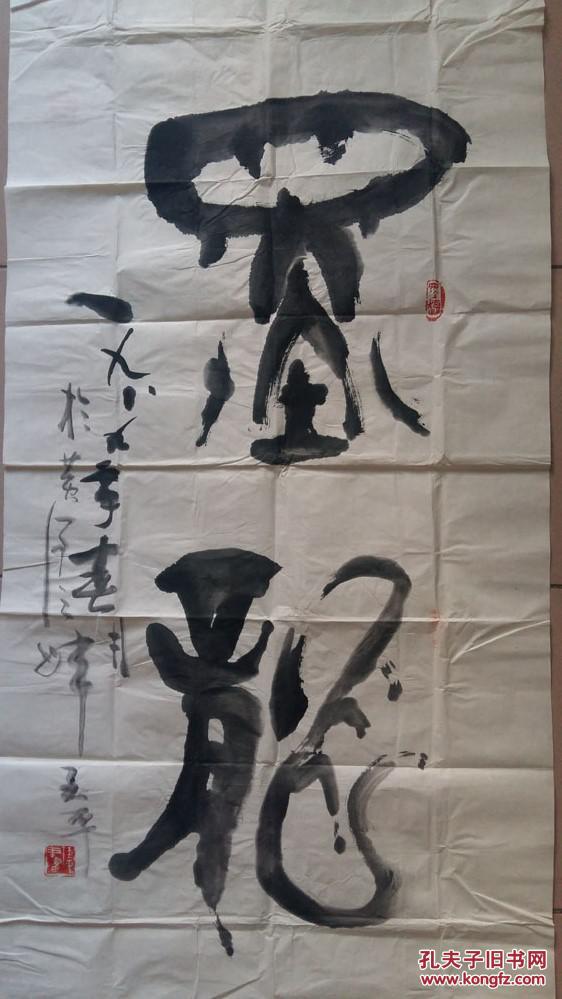 墨龍
一九八九年春月
於黄河之
孔夫子旧书网
www.kongfz.com